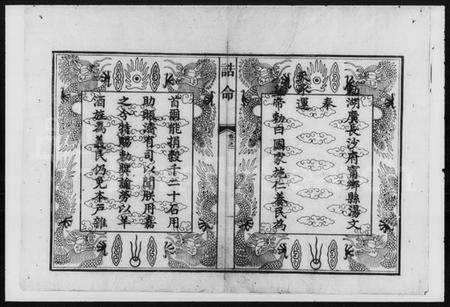 勅湖廣長沙府甯鄉縣湯文
奉
天承運
皇帝勅曰國家施仁養民為
誥命
首爾能捐穀千二十石用
助賑濟有司以聞朕用嘉
之今特賜勅獎諭勞以羊
酒旌為義民仍免本戶雜